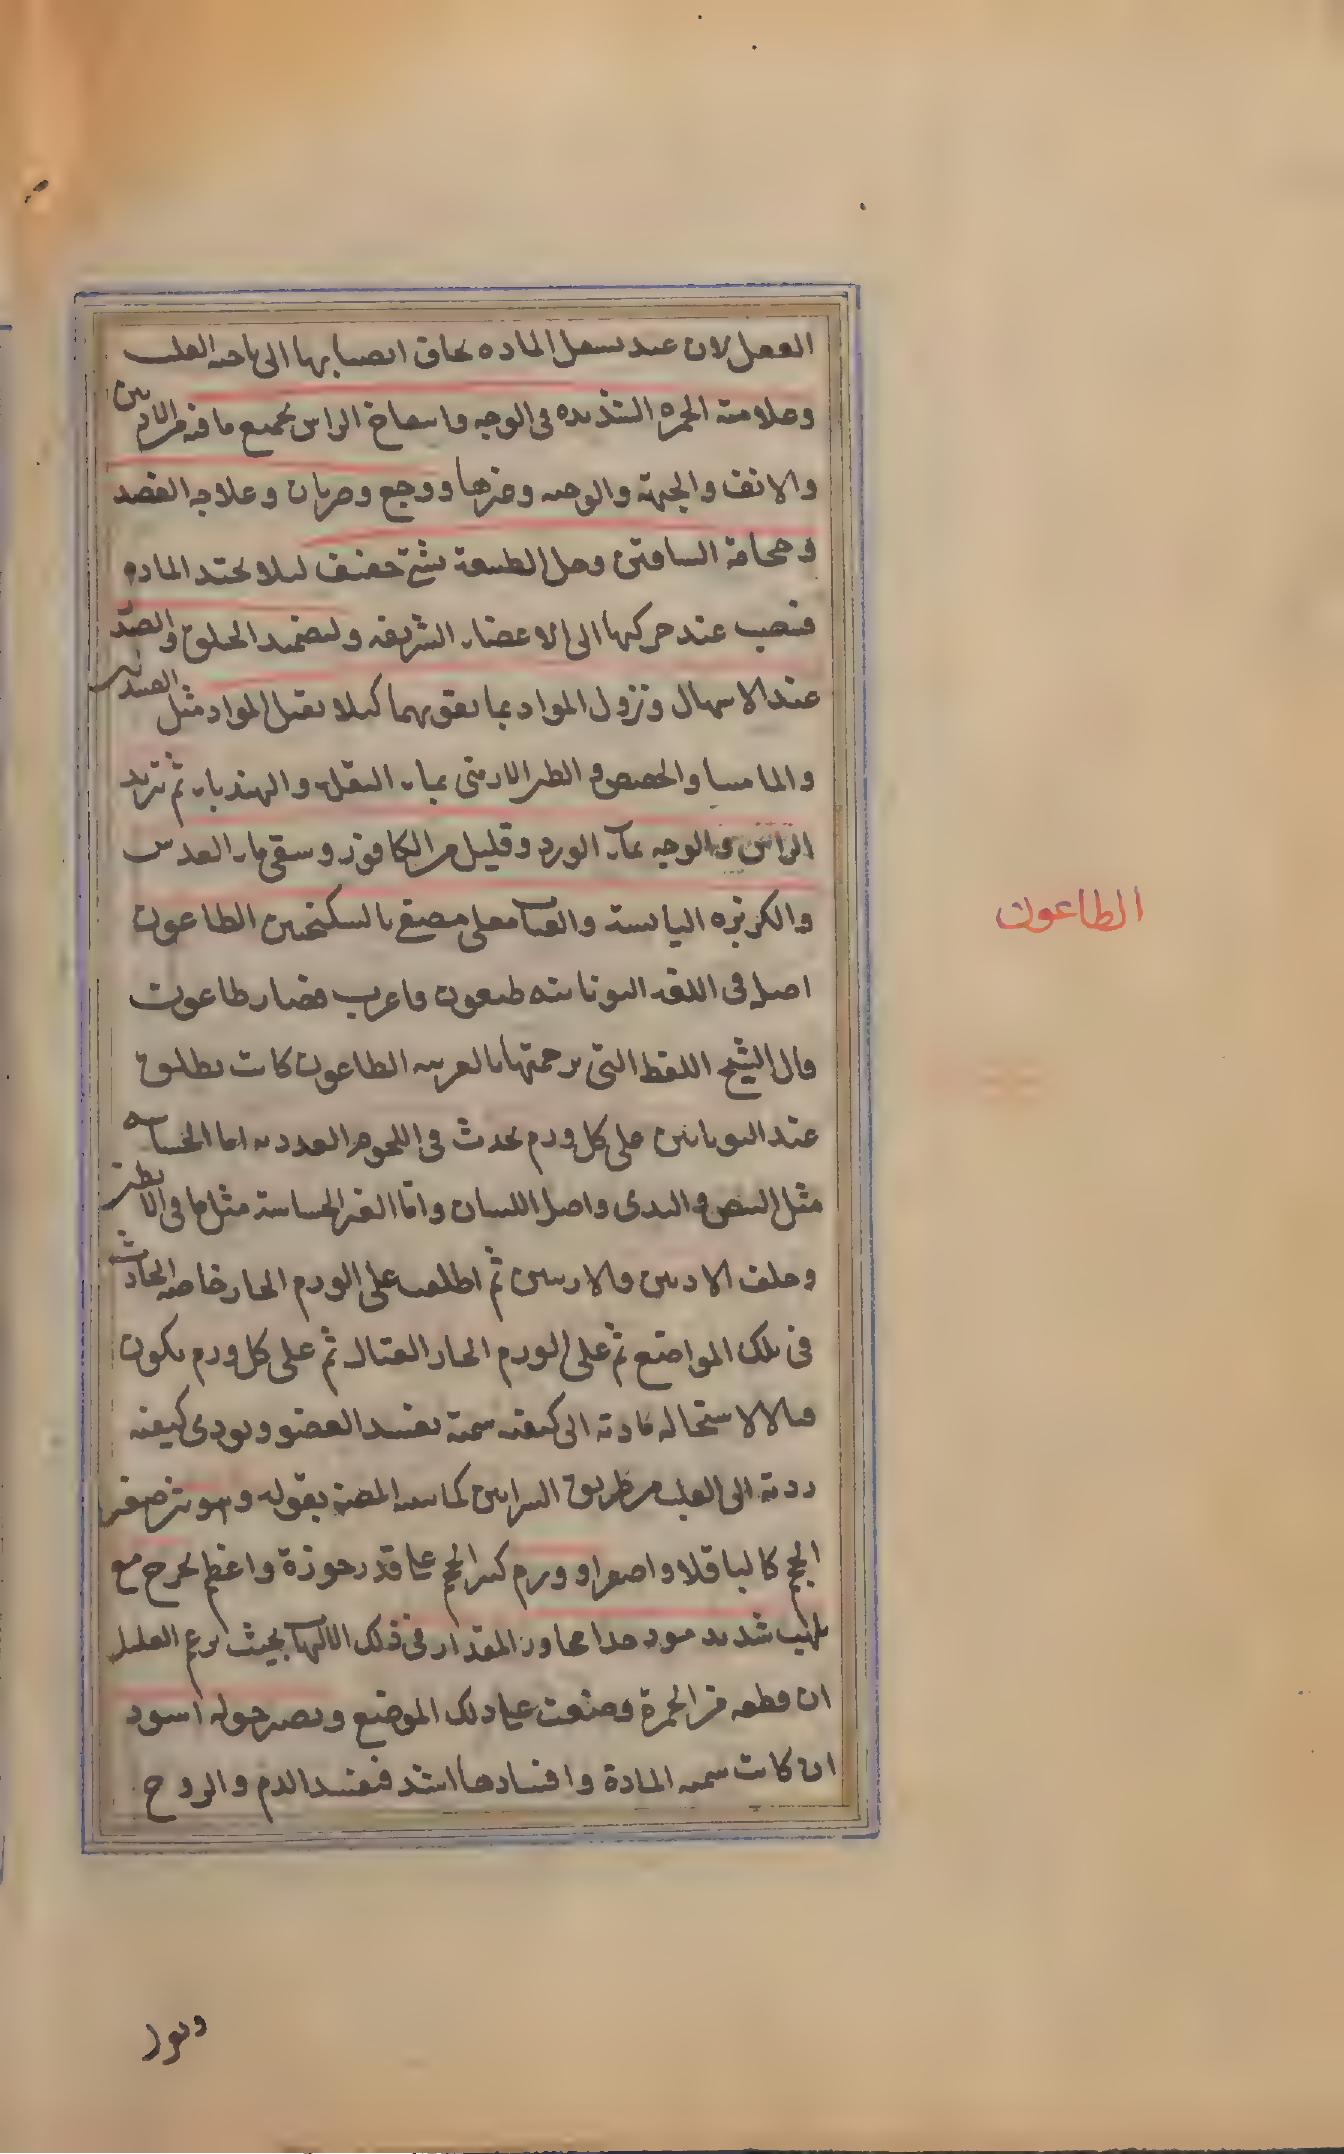 الفعل لان عند تسفل الماده يخاف انصبابها الى ناحيه القلب
وعلامته الحمره الشديده فى الوجه وانتفاخ الراس بجميع ما فيه من الاذنين
والانف والجبهة والوجنه وغيرها ووجع وضربان وعلاجه الفصد
وحجامة الساقين وحل الطبيعة بشئ خفيف لئلا يحتد المادة
فتصب عند حركتها الى الاعضاء الشريفه ولتضميد الحلق والصدر
عند الاسهال ونزول المواد بما يقويهما كيلا يقبل المواد مثل الصندلين
والماميسا والحضض والطين الارمنى بماء البقلة والهندباء ثم تبريد
الراس والوجه بماء الورد وقليل من الكافور وسقى ماء العدس
والكزبره اليابسة والعناب مغلى مصفى بالسكنجبين الطاعون
اصل فى اللغه اليونانيه طيعون فاعرب فصار طاعون
قال الشيخ اللفظ التى ترجمتها بالعربيه الطاعون كانت يطلق
عند اليونانيين على كل ورم يحدث فى اللحوم الغدديه اما الحساسه
مثل البيض والثدى واصل اللسان واما الغير الحساسة مثل ما فى الابط
وخلف الاذنين والاربيتين ثم اطلقت على الورم الحار خاصه الحادث
فى تلك المواضع ثم على الورم الحار القتال ثم على كل ورم يكون
قتالا لاستحاله مادته الى كيفيه سمية يفسد العضو ويودى كيفيه
رديه الى القلب من طريق الشرايين كما بينه المصنف بقوله وهو بثر صغير
الحجم كالباقلا واصغر او ورم كبير الحجم على قدر جوزة واعظم يخرج مع
تلهب شديد موذ جدا مجاوز المقدار فى ذلك الالتهاب بحيث يزعم العليل
ان قطعه من الجمرة وضعت على ذلك الموضع ويصير حوله اسود
ان كانت سميه المادة وافسادها اشد فيفسد الدم والروح
الطاعون